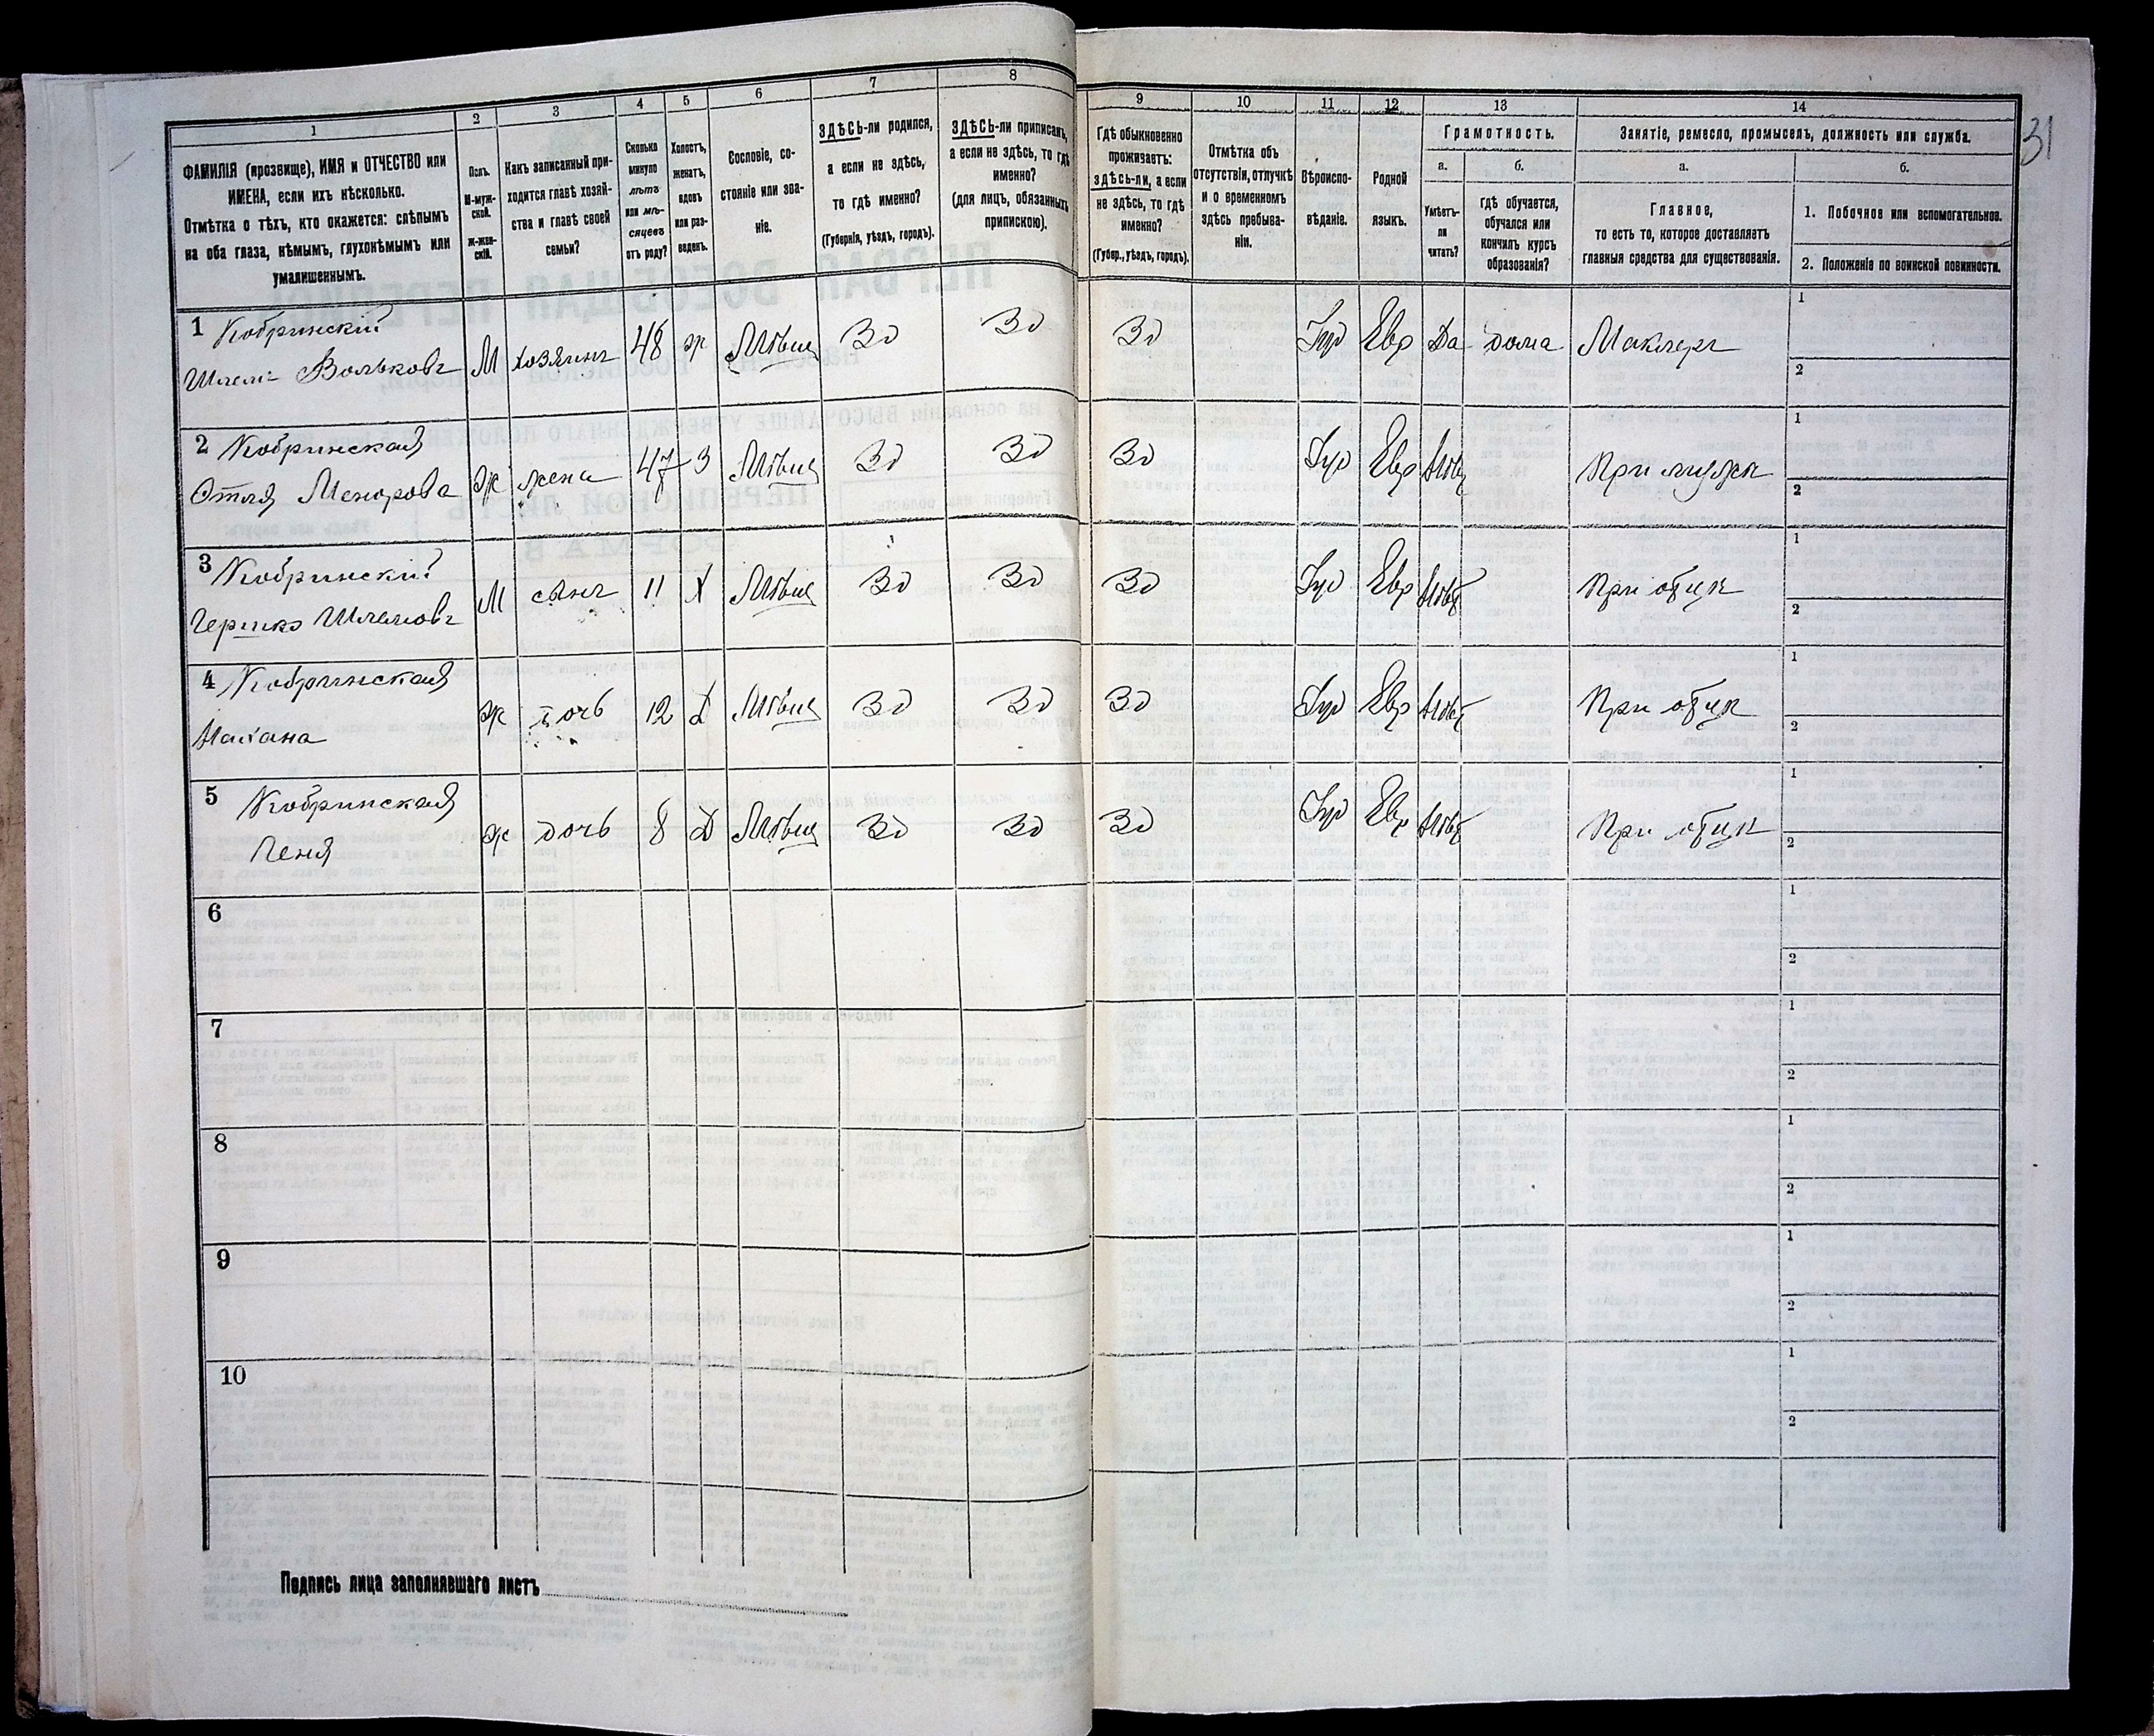 1
2
3
4
5
6
7
8
ФАМИЛІЯ (прозвище), ИМЯ и ОТЧЕСТВО или
ИМЕНА, если ихъ нѣсколько.
Отмѣтка о тѣхъ, кто окажется: слѣпымъ
на оба глаза, нѣмымъ, глухонѣмымъ или
умалишеннымъ.
Полъ.
М-муж-
ской.
Ж-жен-
скій.
Какъ записанный при-
ходится главѣ хозяй-
ства и главѣ своей
семьи?
Сколько
минуло
лѣтъ
или мѣ-
сяцевъ
отъ роду?
Холостъ,
женатъ,
вдовъ
или раз-
веденъ.
Сословіе, со-
стояніе или зва-
ніе.
ЗДѢСЬ-ли родился,
а если не здѣсь,
то гдѣ именно?
(Губернія, уѣздъ, городъ).
ЗДѢСЬ-ли приписанъ,
а если не здѣсь, то гдѣ
именно?
(для лицъ, обязанныхъ
припискою).
9
10
11
12
13
14
31
Гдѣ обыкновенно
проживаетъ:
здѣсь-ли, а если
не здѣсь, то гдѣ
именно?
(Губер., уѣздъ, городъ).
Отмѣтка объ
отсутствіи, отлучкѣ
и о временномъ
здѣсь пребыва-
ніи.
Вѣроиспо-
вѣданіе.
Родной
языкъ.
Грамотность.
а.
б.
Умѣетъ-
ли
читать?
гдѣ обучается,
обучался или
кончилъ курсъ
образованія?
Занятіе, ремесло, промыселъ, должность или служба.
а.
б.
Главное,
то есть то, которое доставляетъ
главныя средства для существованія.
1. Побочное или вспомогательное.
2. Положеніе по воинской повинности.
1 Кобринскій
Шлема Вольковъ М хозяинъ 48 ж Мѣщ Зд Зд Зд Іуд Евр Да дома Маклеръ
1
2
2 Кобринская
Этля Менорова Ж жена 47 З Мѣщ Зд Зд Зд Іуд Евр Нѣтъ При мужѣ
1
2
3 Кобринскій
Гершко Шлемовъ М сынъ 11 Х Мѣщ Зд Зд Зд Іуд Евр Нѣтъ При отцѣ
1
2
4 Кобринская
Ж дочь 12 Д Мѣщ Зд Зд Зд Іуд Евр Нѣтъ При отцѣ
1
2
5 Кобринская
Геня Ж дочь 8 Д Мѣщ Зд Зд Зд Іуд Евр Нѣтъ При отцѣ
1
2
6
1
2
7
1
2
8
1
2
9
1
2
10
1
2
Подпись лица заполнявшаго листъ